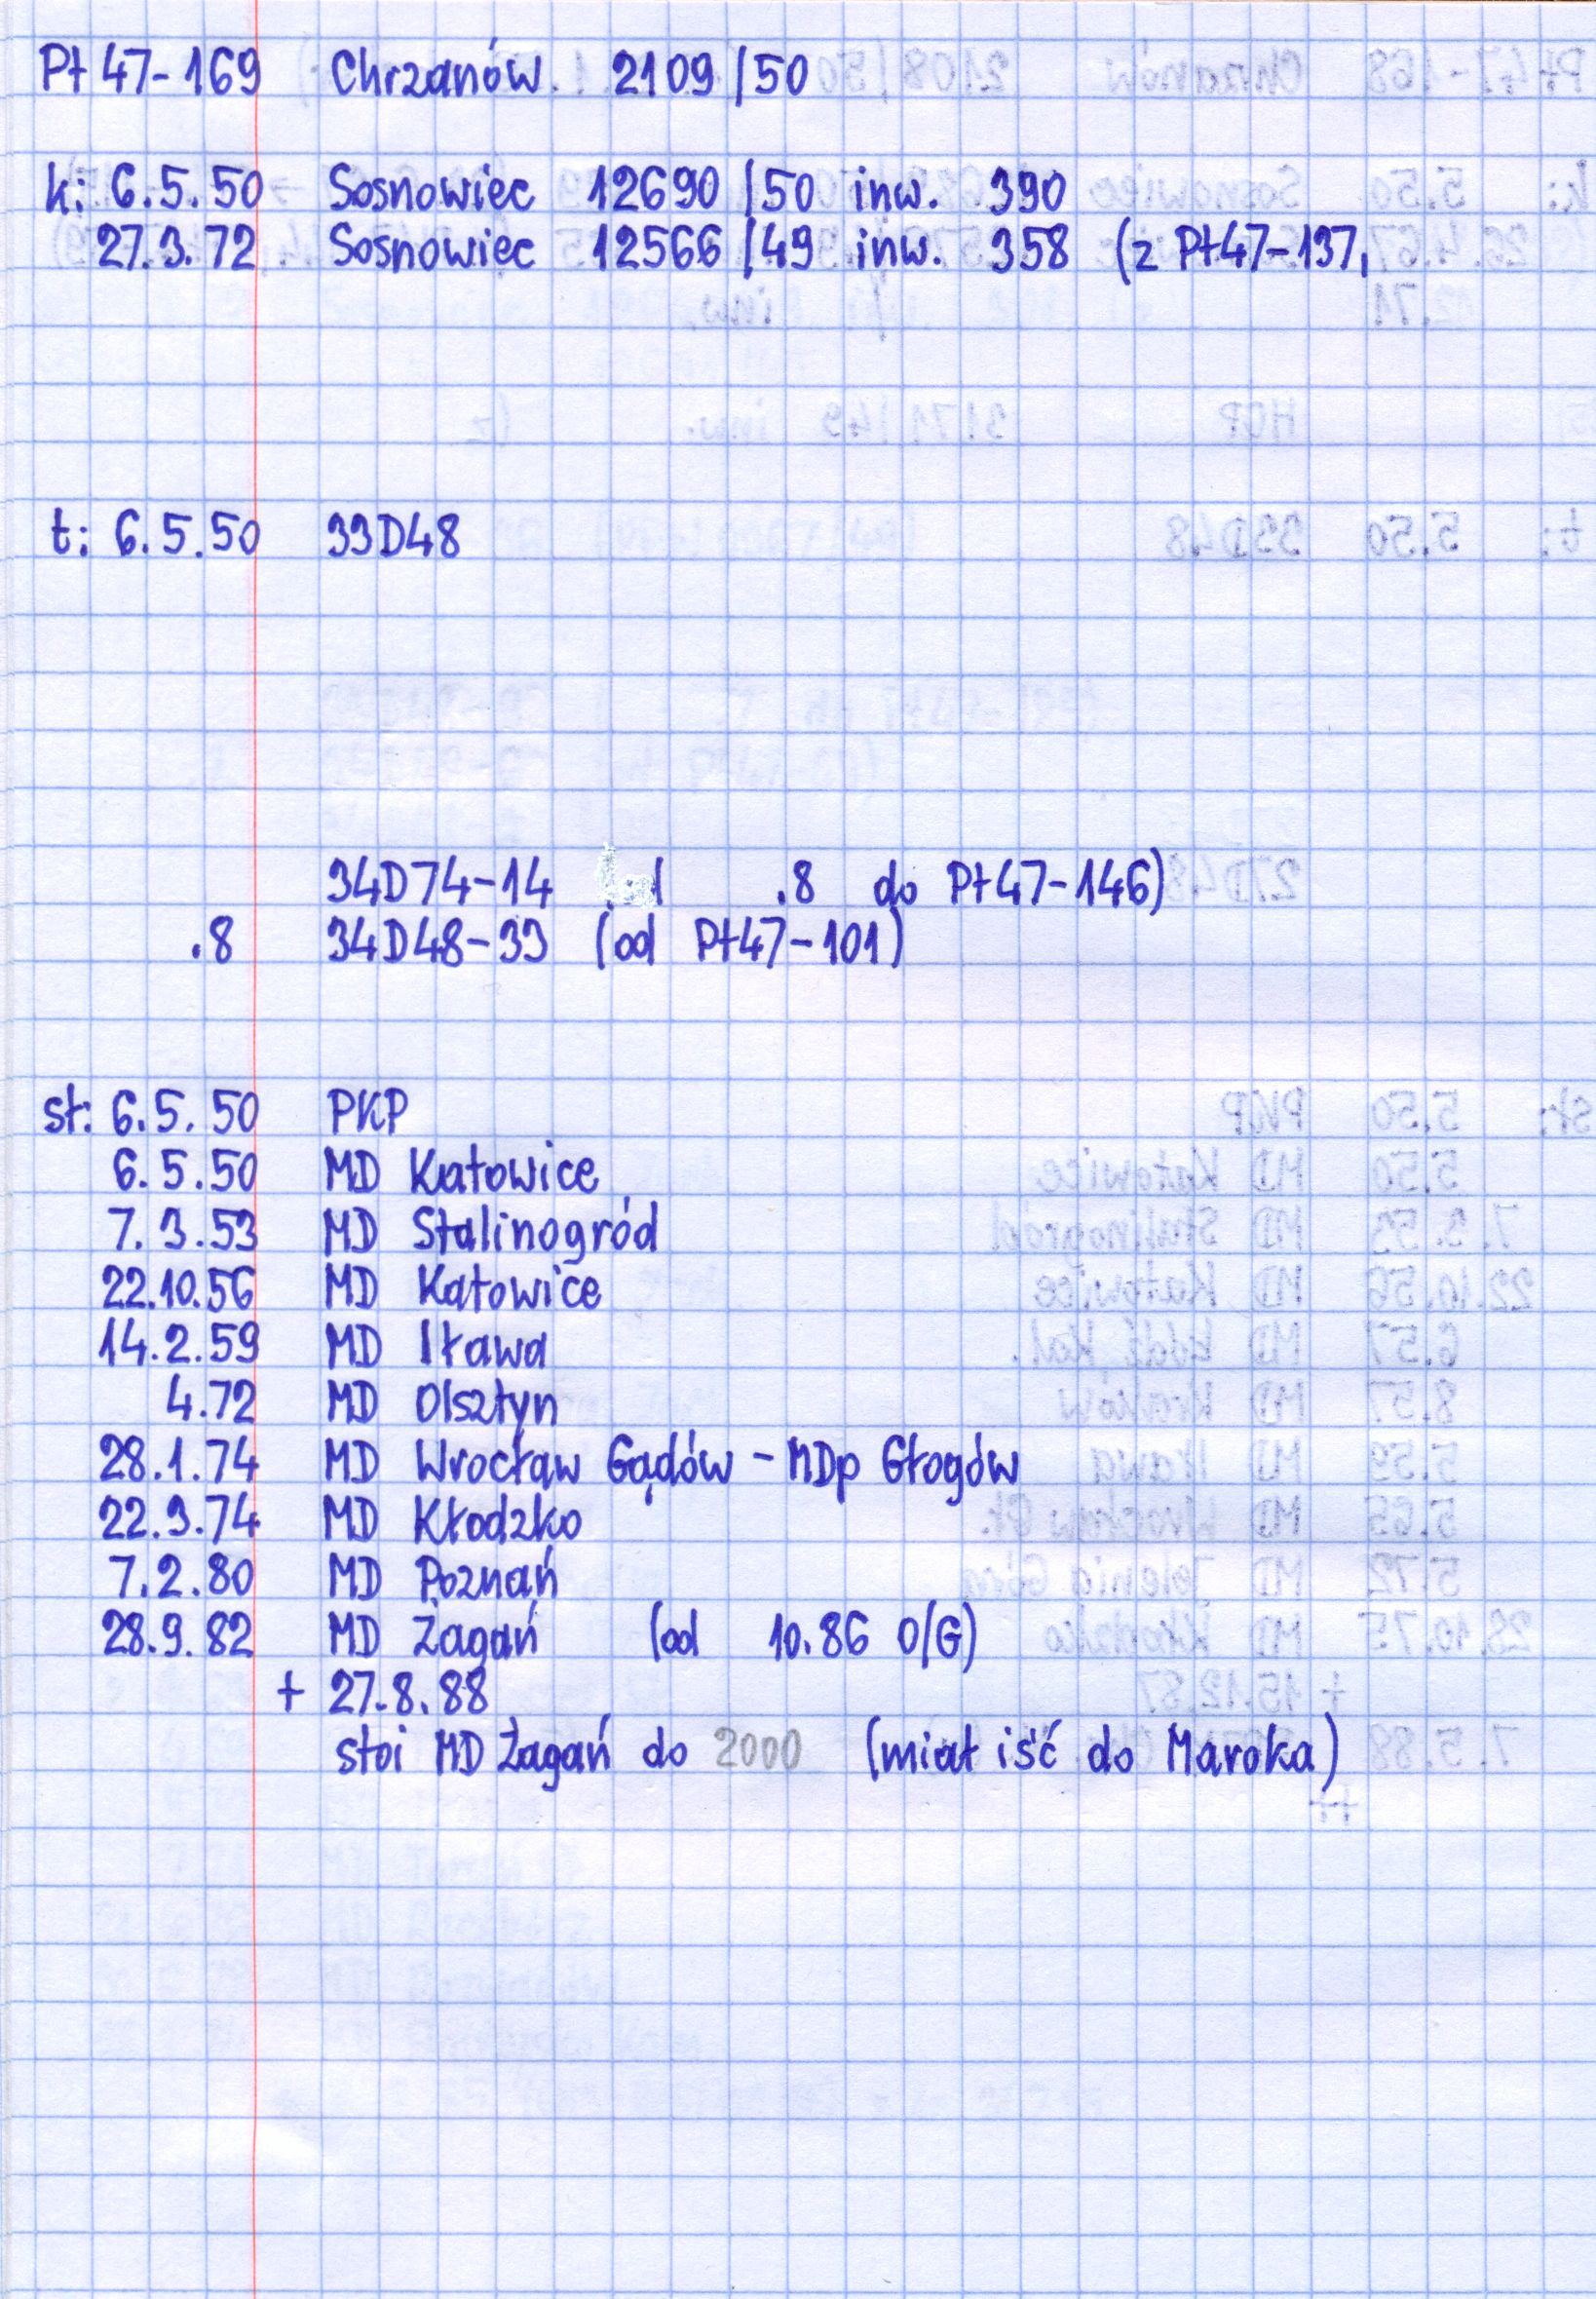 Pt 47-169 Chrzanów 2109/50
k: 6.5.50 Sosnowiec 12690/50 inw. 390
27.3.72 Sosnowiec 12566/49 inw. 358 (z Pt47-137,
t: 6.5.50 33D48
34D74-14 .8 do Pt47-146)
.8 34D48-33 (od Pt47-101)
st: 6.5.50 PKP
6.5.50 MD Katowice
7.3.53 MD Stalinogród
22.10.56 MD Katowice
14.2.59 MD Iława
4.72 MD Olsztyn
28.1.74 MD Wrocław Gądów - MDp Głogów
22.3.74 MD Kłodzko
7.2.80 MD Poznań
28.9.82 MD Żagań (od 10.86 O/G)
+ 27.8.88
stoi MD Żagań do 2000 (miał iść do Maroka)